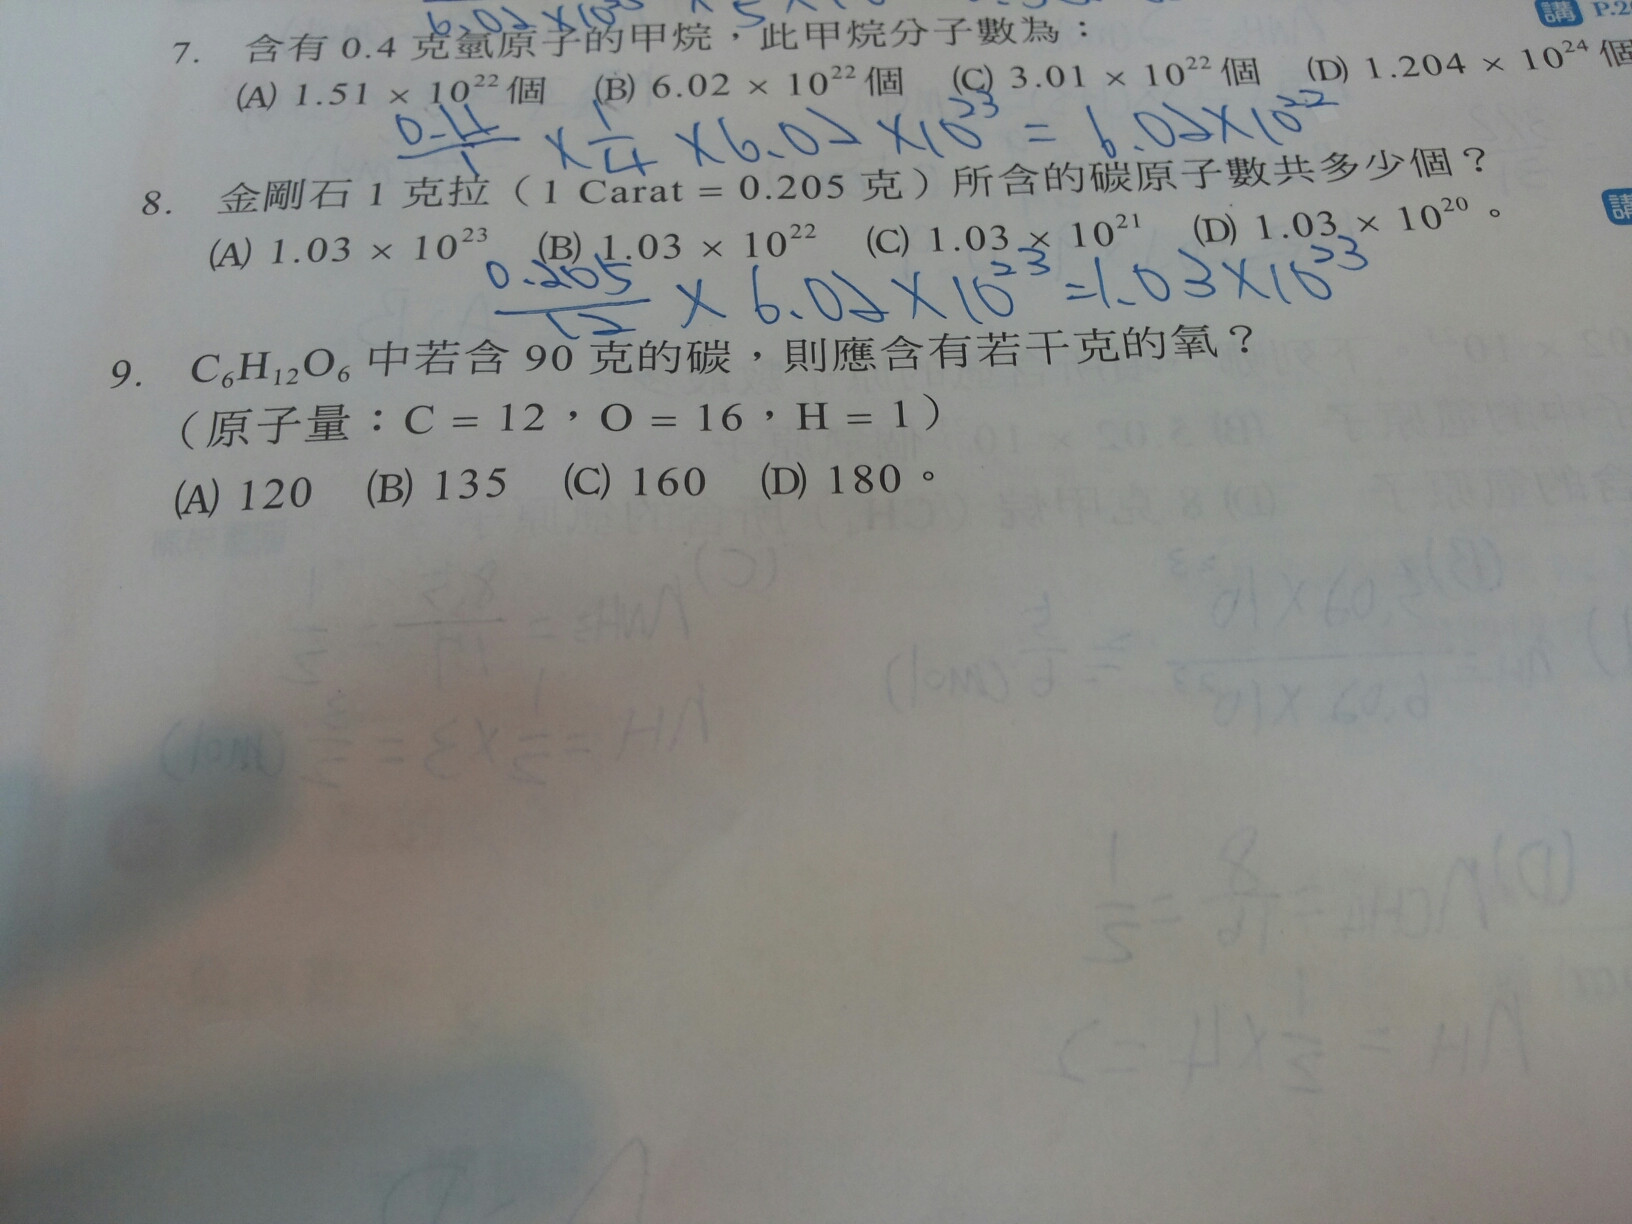 6.02×10²³
講 P.2
7. 含有 0.4 克氫原子的甲烷，此甲烷分子數為：
(A) 1.51 × 10²² 個 (B) 6.02 × 10²² 個 (C) 3.01 × 10²² 個 (D) 1.204 × 10²⁴ 個
0.4/1 × 1/4 × 6.02 × 10²³ = 6.02 × 10²²
8. 金剛石 1 克拉（1 Carat = 0.205 克）所含的碳原子數共多少個？
講
(A) 1.03 × 10²³ (B) 1.03 × 10²² (C) 1.03 × 10²¹ (D) 1.03 × 10²⁰。
0.205/12 × 6.02 × 10²³ = 1.03 × 10²³
9. C₆H₁₂O₆ 中若含 90 克的碳，則應含有若干克的氧？
（原子量：C = 12，O = 16，H = 1）
(A) 120 (B) 135 (C) 160 (D) 180。